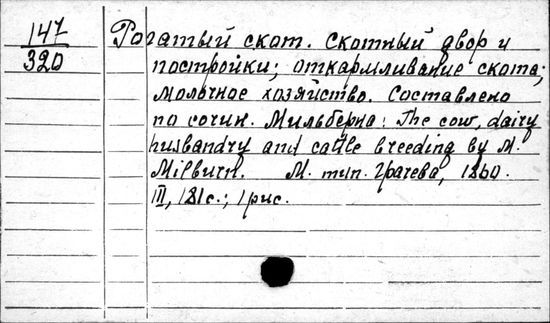 147
320
Рогатый скот. Скотный двор и
постройки; откармливание скота;
молочное хозяйство. Составлено
по сочин. Мильберна: The cow, dairy
husbandry and cattle breeding by M.
Milburn. М. тип. Грачева, 1860.
III, 181с.; 1 рис.